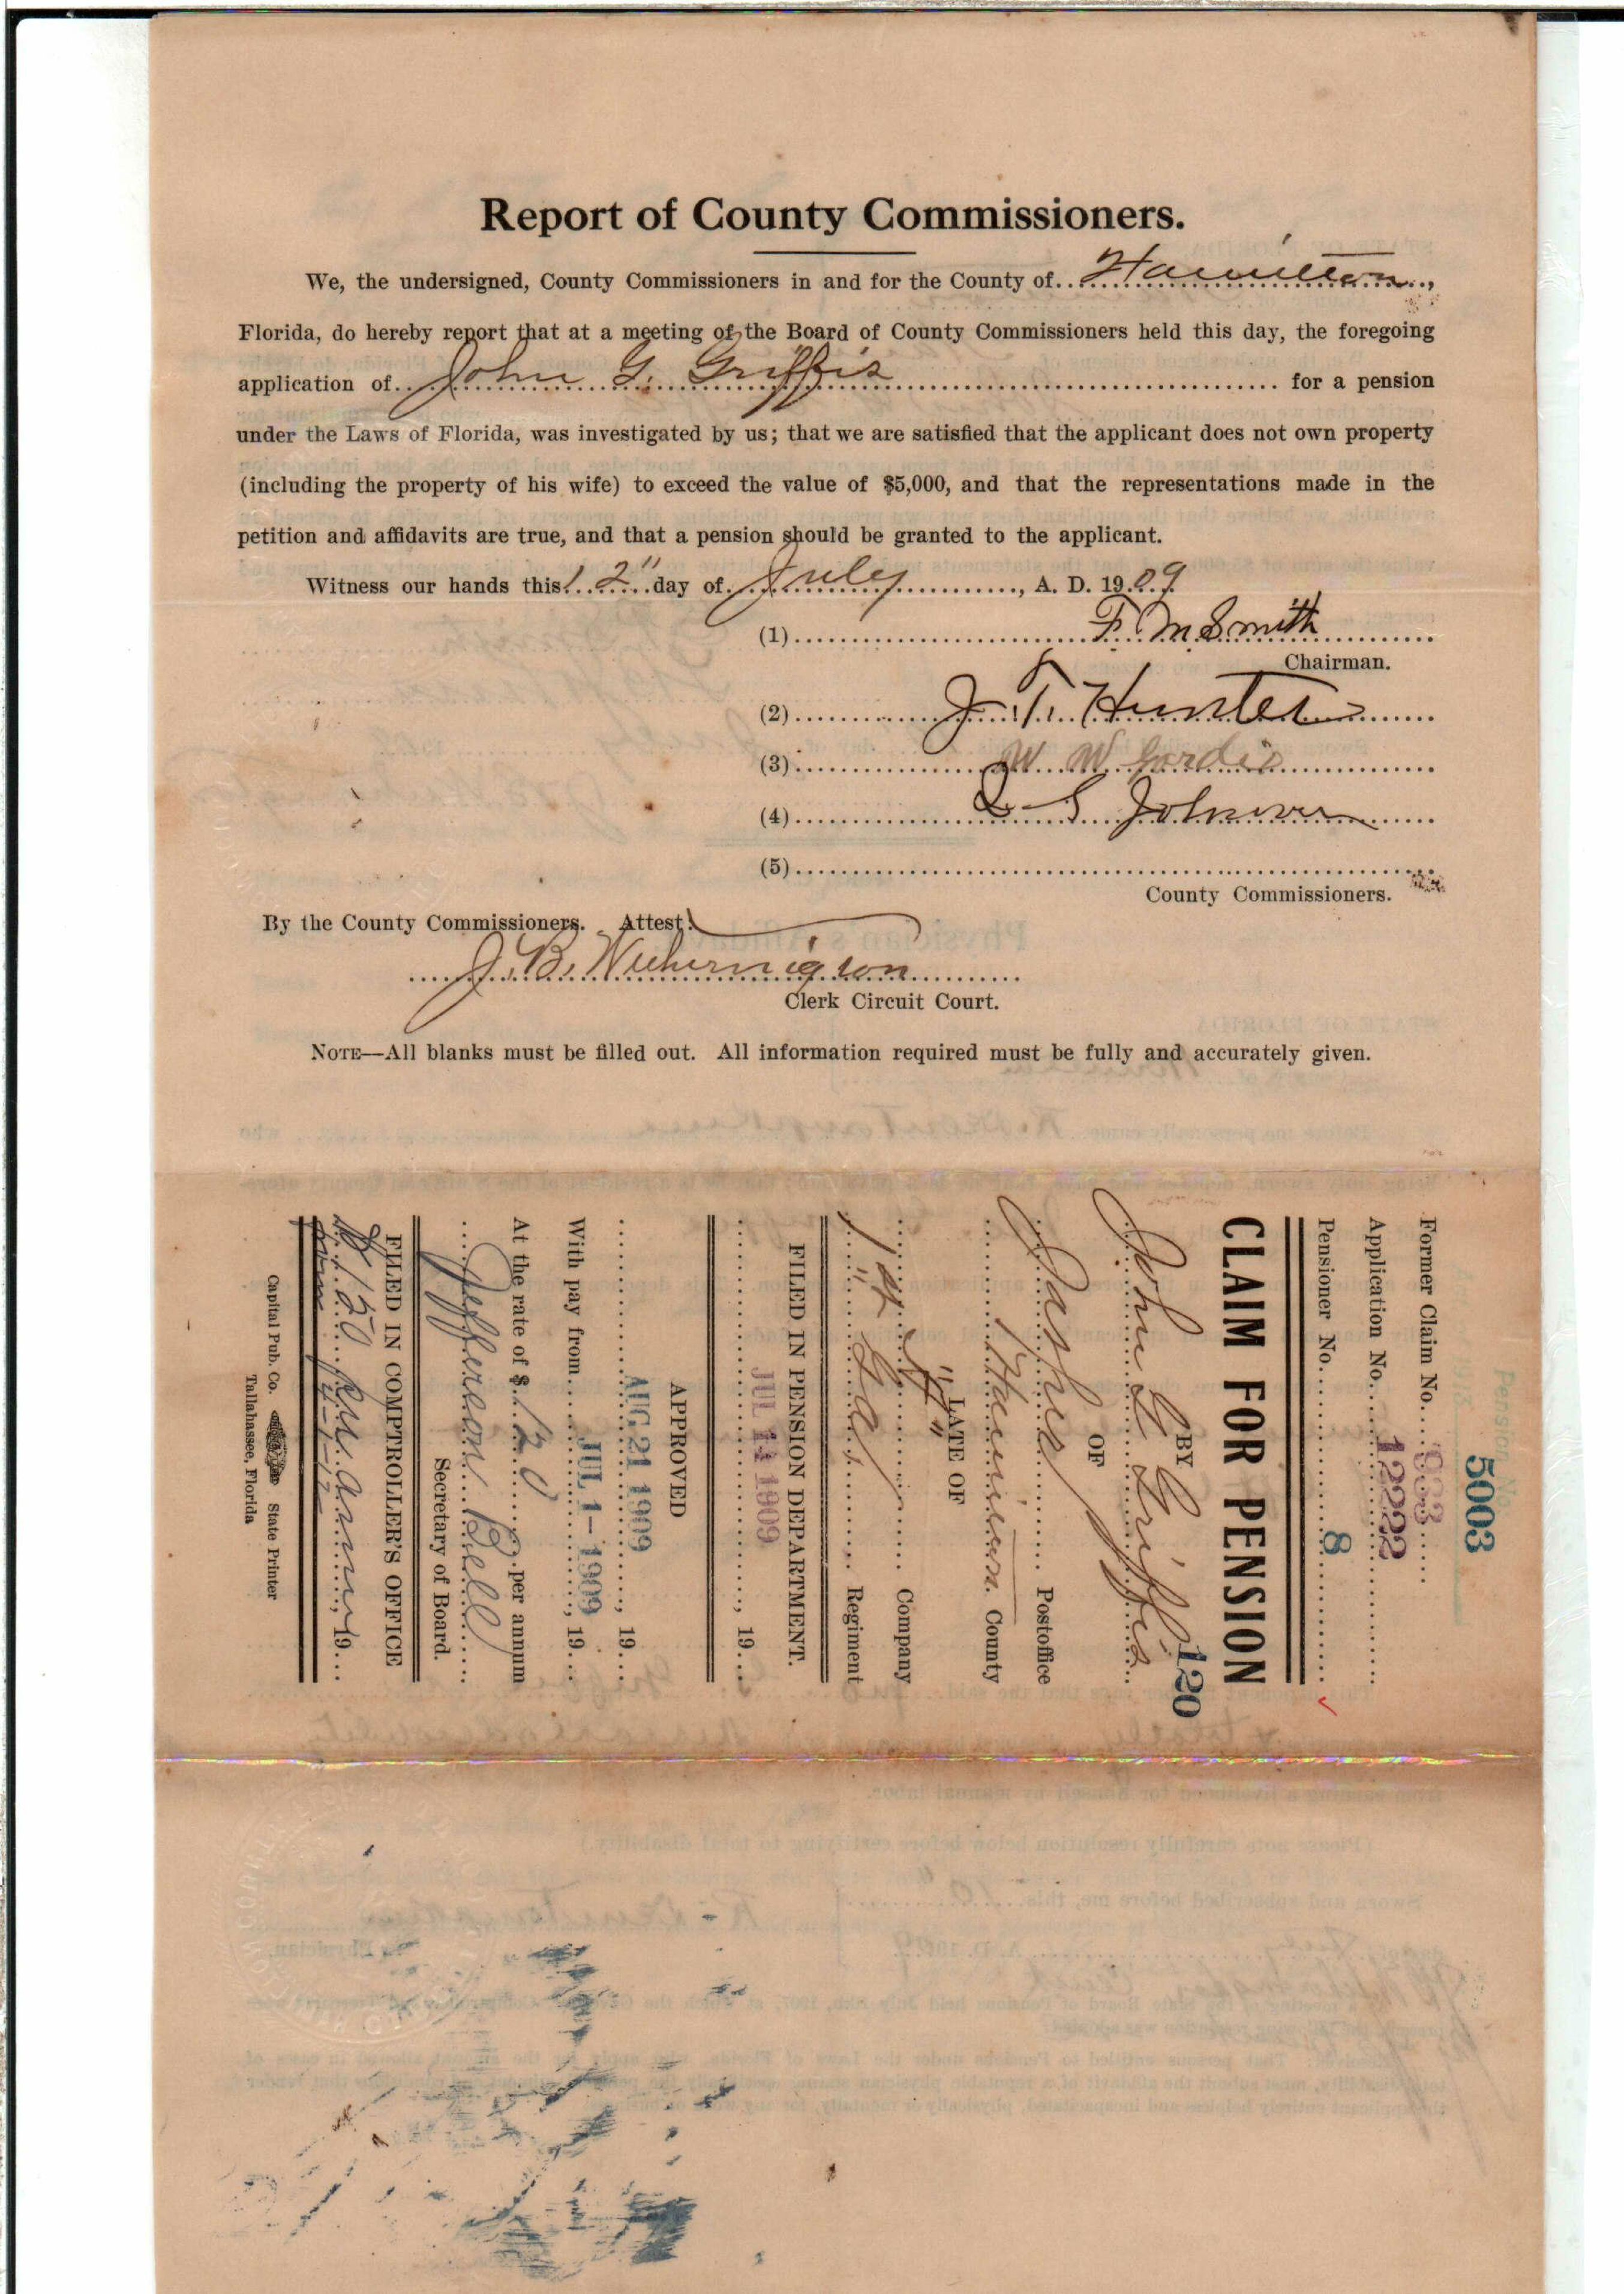 Report of County Commissioners.
We, the undersigned, County Commissioners in and for the County of Hamilton,
Florida, do hereby report that at a meeting of the Board of County Commissioners held this day, the foregoing
application of John G. Griffis for a pension
under the Laws of Florida, was investigated by us; that we are satisfied that the applicant does not own property
(including the property of his wife) to exceed the value of $5,000, and that the representations made in the
petition and affidavits are true, and that a pension should be granted to the applicant.
Witness our hands this 12" day of July, A. D. 1909
(1) F. M. Smith
Chairman.
(2) J. T. Hunter
(3) W W
(4) S Johnson
(5)
County Commissioners.
By the County Commissioners. Attest:
J. B.
Clerk Circuit Court.
NOTE—All blanks must be filled out. All information required must be fully and accurately given.
5003
Former Claim No. 963
Application No. 12222
Pensioner No. 8
CLAIM FOR PENSION
120
BY
John G Griffis
OF
Jasper Postoffice
Hamilton County
LATE OF
"G" Company
1st Ga. Regiment
FILED IN PENSION DEPARTMENT.
JUL 14 1909, 19
APPROVED
AUG 21 1909, 19
With pay from JUL 1-1909, 19
At the rate of $ 120 per annum
Jefferson Bell
Secretary of Board.
FILED IN COMPTROLLER'S OFFICE
$150 per annum, 19
from 4-1-17
Capital Pub. Co. State Printer
Tallahassee, Florida